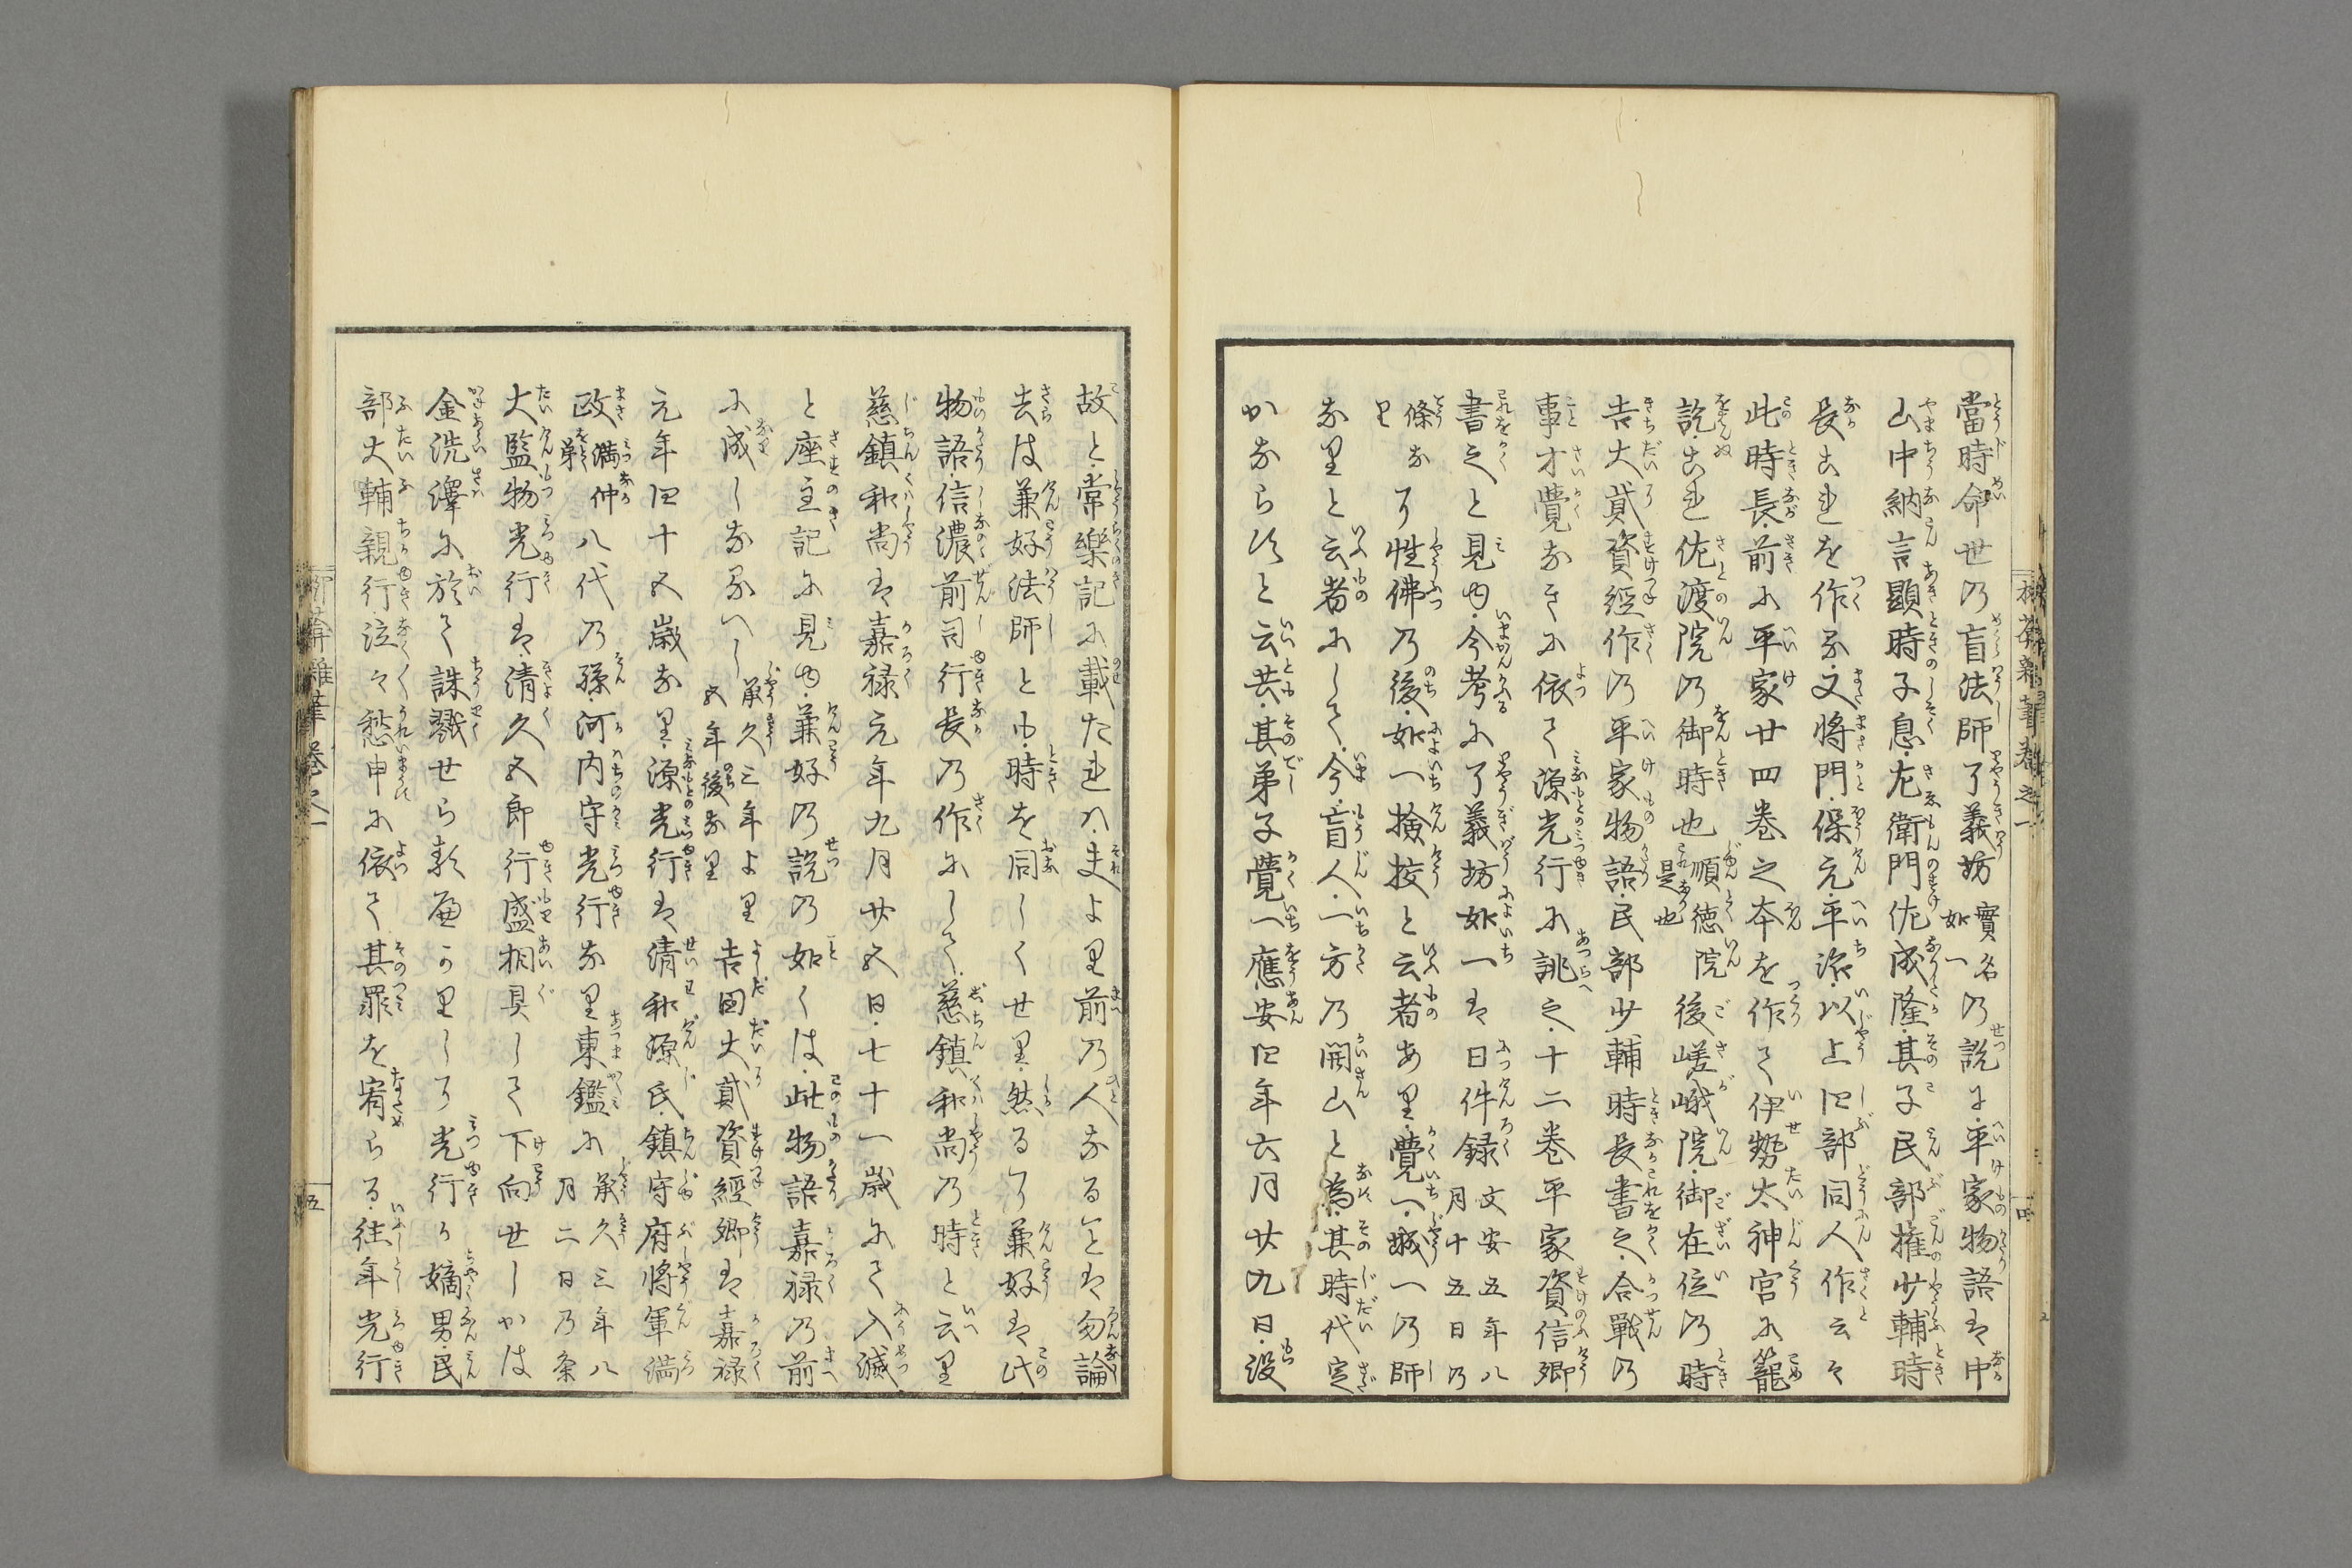 當時命世の盲法師了義坊實名如一の説に平家物語は中
山中納言顯時子息左衛門佐成隆其子民部權少輔時
長これを作る又將門保元平治以上四部同人作云々
此時長前に平家廿四巻之本を作て伊勢太神宮に籠
訖これ佐渡院の御時也順徳院是也後嵯峨院御在位の時
吉大貳資經作の平家物語民部少輔時長書之合戰の
事才覺なきに依て源光行に誂之十二巻平家資信卿
書之と見ゆ今考るに了義坊如一は日件録文安五年八月十五日の
條なり性佛の後如一撿挍と云者あり覺一城一の師
なりと云者にして今盲人一方の開山と為其時代定
かならすと云共其弟子覺一應安四年六月廿九日没
故と常樂記に載たれハ夫より前の人なること勿論
去は兼好法師とも時を同しくせり然るに兼好は此
物語信濃前司行長の作にして慈鎮和尚の時と云り
慈鎮和尚は嘉禄元年九月廿五日七十一歳にて入滅
と座主記に見ゆ兼好の説の如くは此物語嘉禄の前
に成しなるへし承久三年より五年後なり吉田大貳資經卿は嘉禄
元年四十五歳なり源光行は清和源氏鎮守府將軍満
政満仲弟八代の孫河内守光行なり東鑑に承久三年八月二日の条
大監物光行は清久五郎行盛相具して下向せしかは
金洗澤に於て誅戮せらるへかりしに光行か嫡男民
部大輔親行泣々愁申に依て其罪を宥らる往年光行